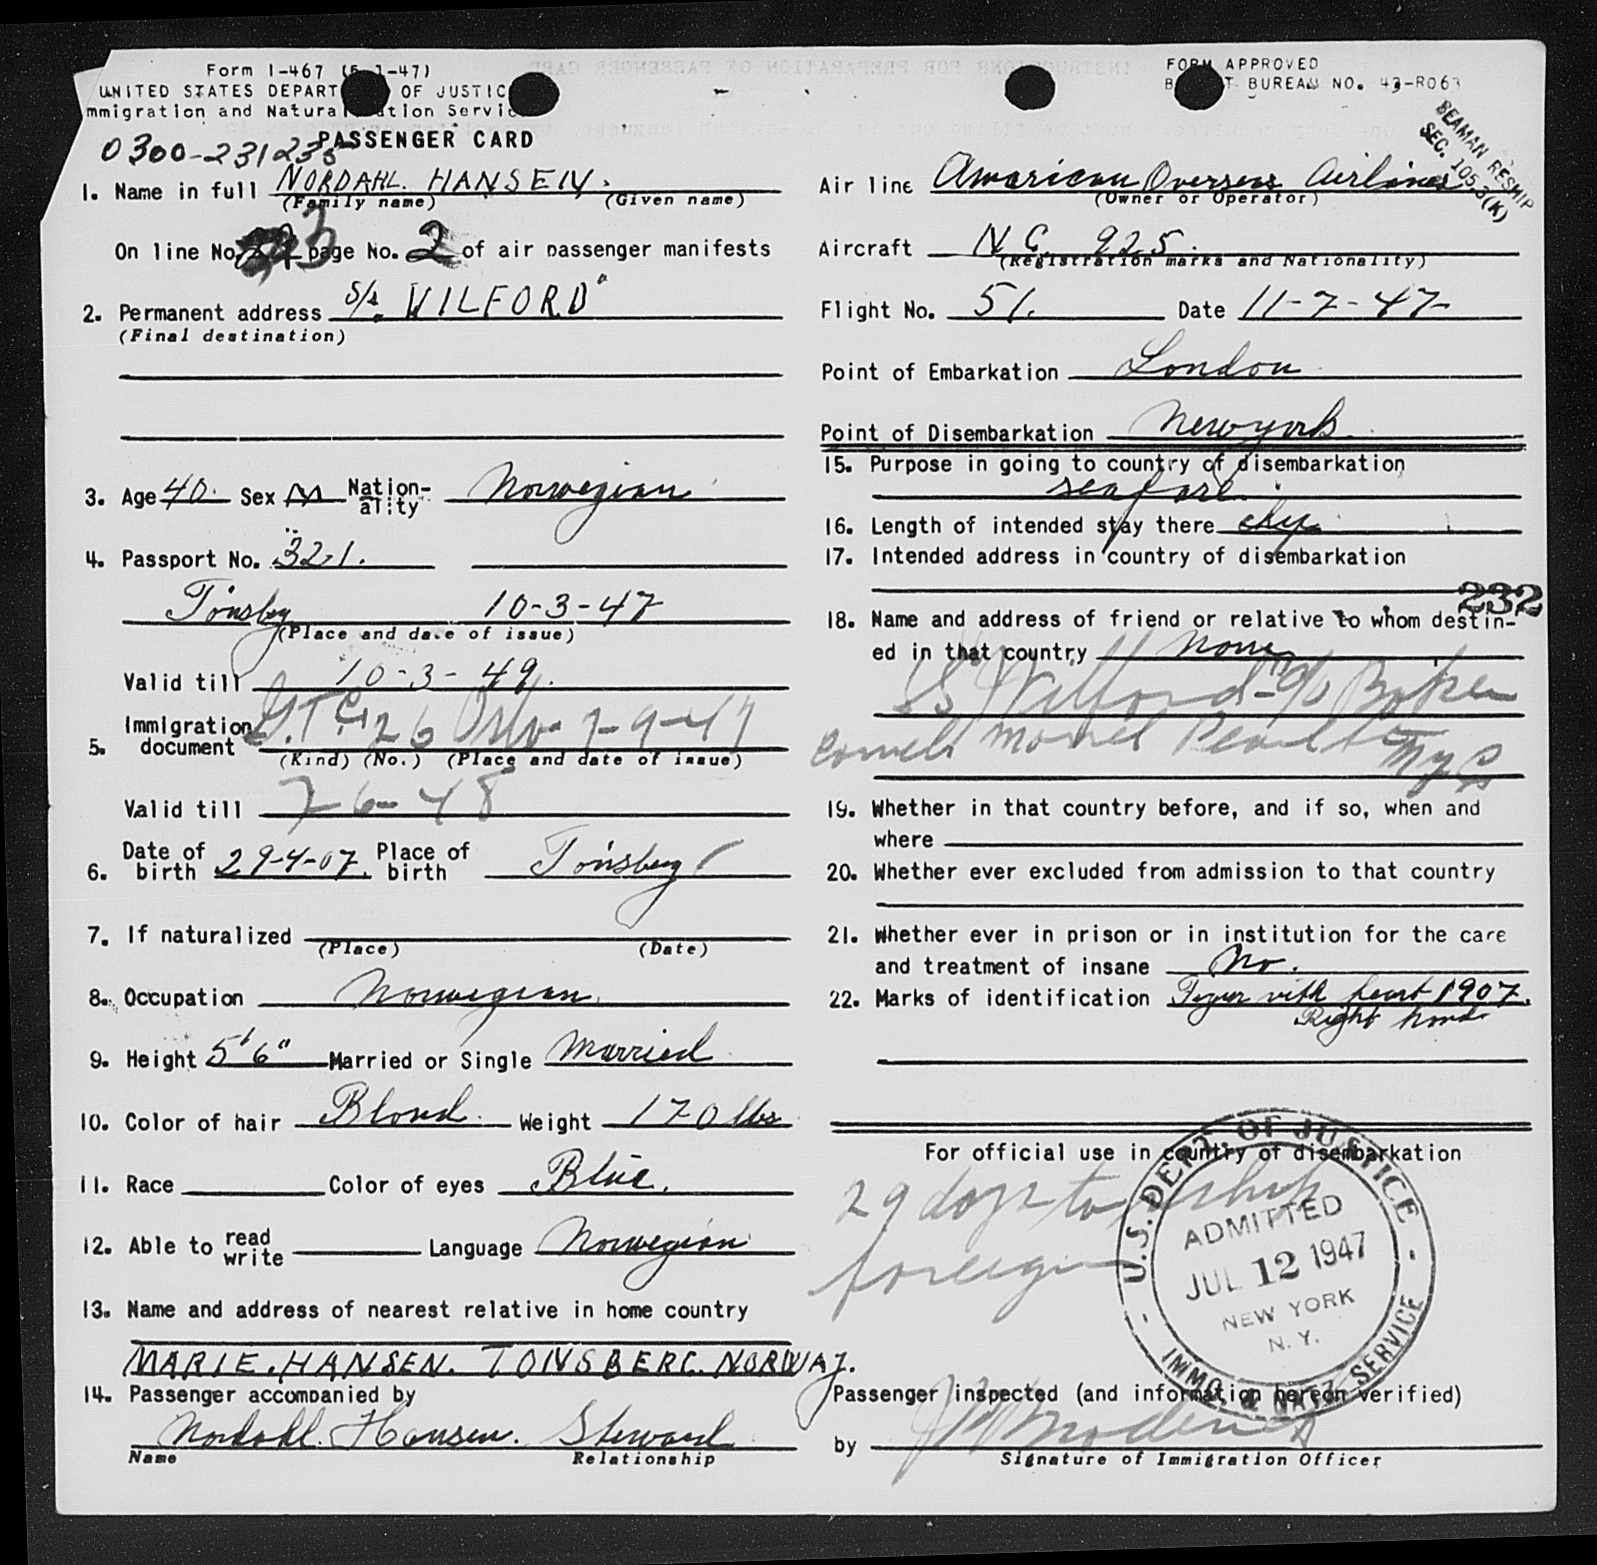 Form I-467 (5-1-47)
UNITED STATES DEPART OF JUSTIC
mmigration and Natura ation Servi
PASSENGER CARD
0300-231235
1. Name in full NORDAHL. HANSEN.
(Family name) (Given name)
On line No. page No. 2 of air passenger manifests
2. Permanent address S/s. WILFORD"
(Final destination)
3. Age 40. Sex M Nation-ality Norwegian
4. Passport No. 321.
Tönsberg 10-3-47
(Place and date of issue)
Valid till 10-3-49.
5. Immigration document 26 Oslo 7-9-47
(Kind) (No.) (Place and date of issue)
Valid till 7-6-48
6. Date of birth 29-4-07. Place of birth Tönsberg
7. If naturalized
(Place) (Date)
8. Occupation Norwegian.
9. Height 5'6" Married or Single Married
10. Color of hair Blond. Weight 170 lbs
11. Race Color of eyes Blue.
12. Able to read write Language Norwegian
13. Name and address of nearest relative in home country
MARIE. HANSEN. TONSBERG. NORWAY.
14. Passenger accompanied by
Nordahl. Hansen. Steward
Name Relationship
FORM APPROVED
B T BUREAU NO. 43-R063
SEAMAN RESHIP
SEC. 105.3(K)
Air line American Overseas Airlines
(Owner or Operator)
Aircraft N C 925.
(Registration marks and Nationality)
Flight No. 51. Date 11-7-47
Point of Embarkation London
Point of Disembarkation New york
15. Purpose in going to country of disembarkation
seafare.
16. Length of intended stay there
17. Intended address in country of disembarkation
232
18. Name and address of friend or relative to whom destin-
ed in that country None
SS Wilford - c/o Boken
NYC
19. Whether in that country before, and if so, when and
where
20. Whether ever excluded from admission to that country
21. Whether ever in prison or in institution for the care
and treatment of insane No.
22. Marks of identification with heart 1907.
Right hand
For official use in country of disembarkation
29 days to reship
foreign
U.S. DEPT. OF JUSTICE
ADMITTED
JUL 12 1947
NEW YORK
N.Y.
IMMG. & NATZ. SERVICE
Passenger inspected (and information hereon verified)
by
Signature of Immigration Officer